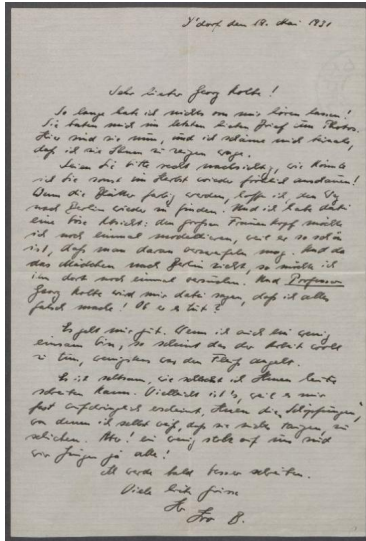 Y'dorf den 18. Mai 1931
Sehr lieber Georg Kolbe!
So lange habe ich nichts von mir hören lassen!
Sie baten mich im letzten lieben Brief um Photos.
Hier sind sie nun, und ich schäme mich beinahe,
daß ich sie Ihnen zu zeigen wage.
Seien Sie bitte recht nachsichtig, wie könnte
ich Sie sonst im Herbst wieder fröhlich anschauen!
Wenn die Blätter farbig werden, hoffe ich, den Weg
nach Berlin wieder zu finden. Und ich habe dabei
eine böse Absicht: den großen Frauenkopf möchte
ich noch einmal modellieren, weil er so schön
ist, daß man daran verzweifeln mag. Und da
das Mädchen nach Berlin zieht, so möchte ich
ihn dort noch einmal versuchen. Und Professor
Georg Kolbe wird mir dabei sagen, daß ich alles
falsch mache! Ob er es tut?
Es geht mir gut. Wenn ich auch ein wenig
einsam bin, so scheint das der Arbeit wohl
zu tun, wenigstens was den Fleiß angeht.
Es ist seltsam, wie schlecht ich Ihnen heute
schreiben kann. Vielleicht ist's, weil es mir
fast aufdringlich erscheint, Ihnen die "Schöpfungen",
von denen ich selbst weiß, daß sie nichts taugen, zu
schicken. Aber! ein wenig stolz auf uns sind
wir Jungen ja alle!
Ich werde bald besser schreiben.
Viele liebe Grüsse
Ihr
B.